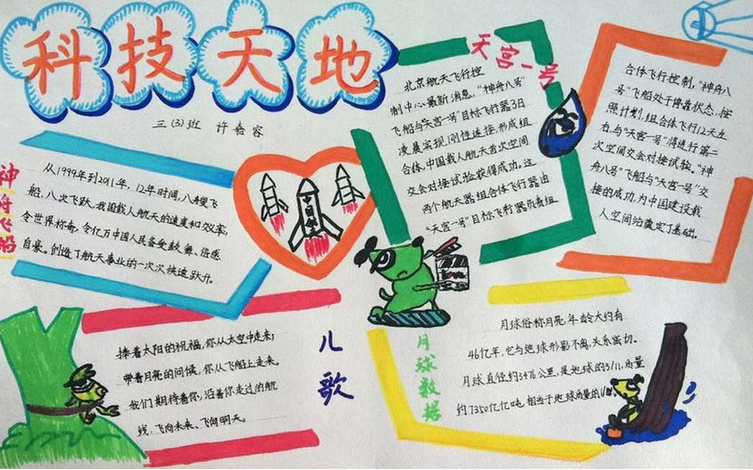 科技天地
三(3)班 许春容
神舟飞船
从1999年到2011年,12年时间,八艘飞
船,八次飞跃,我国载人航天的速度和效率,
令世界称奇,令亿万中国人民备受鼓舞、倍感
自豪。创造了航天事业的一次次快速跃升。
天宫一号
北京航天飞行控
制中心最新消息,"神舟八号"
飞船与"天宫一号"目标飞行器3日
凌晨实现刚性连接,形成组
合体,中国载人航天首次空间
交会对接试验获得成功。这
两个航天器组合体飞行器由
"天宫一号"目标飞行器负责组
合体飞行控制,"神舟八
号"飞船处于停靠状态,按
照计划,组合体飞行12天左
右,与"天宫一号"将进行第二
次空间交会对接试验。"神
舟八号"飞船与"天宫一号"交
接的成功,为中国建设载
人空间站奠定了基础。
儿歌
捧着太阳的祝福,你从太空中走来;
带着月亮的问候,你从飞船上走来。
我们期待着你,沿着你走过的航
线,飞向未来、飞向明天。
月球数据
月球俗称月亮,年龄大约有
46亿年,它与地球形影不离,关系密切。
月球直径约3476公里,是地球的3/11,质量
约7350亿亿吨,相当于地球质量的1/81